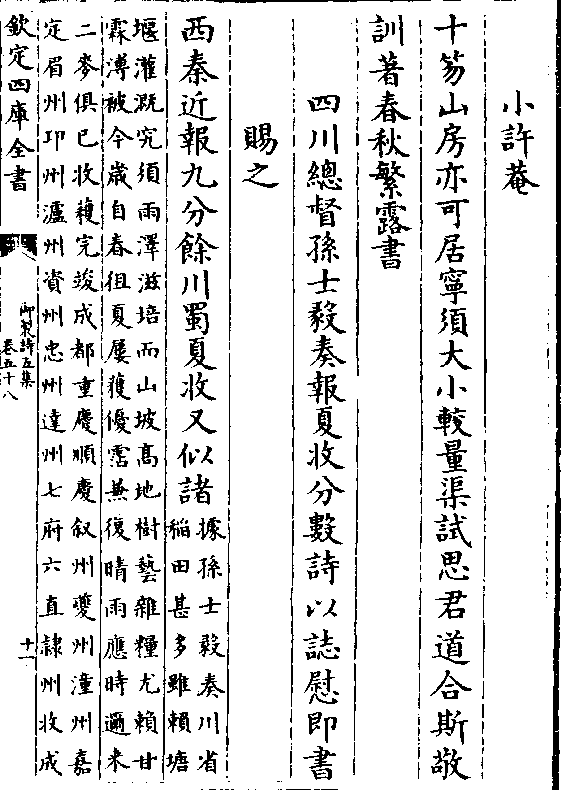 小許菴
十笏山房亦可居寧須大小較量渠試思君道合斯敬
訓著春秋繁露書
四川總督孫士毅奏報夏收分數詩以誌慰即書
賜之
西秦近報九分餘川蜀夏收又似諸據孫士毅奏川省
稻田甚多雖賴塘
堰灌溉究須雨澤滋培而山坡高地樹藝雜糧尤賴甘
霖溥被今嵗自春徂夏屢獲優霑兼復晴雨應時邇來
二麥俱已收穫完竣成都重慶順慶叙州夔州潼州嘉
定眉州邛州瀘州資州忠州達州七府六直隷州收成
欽定四庫全書
御製詩五集
卷五十八
十一